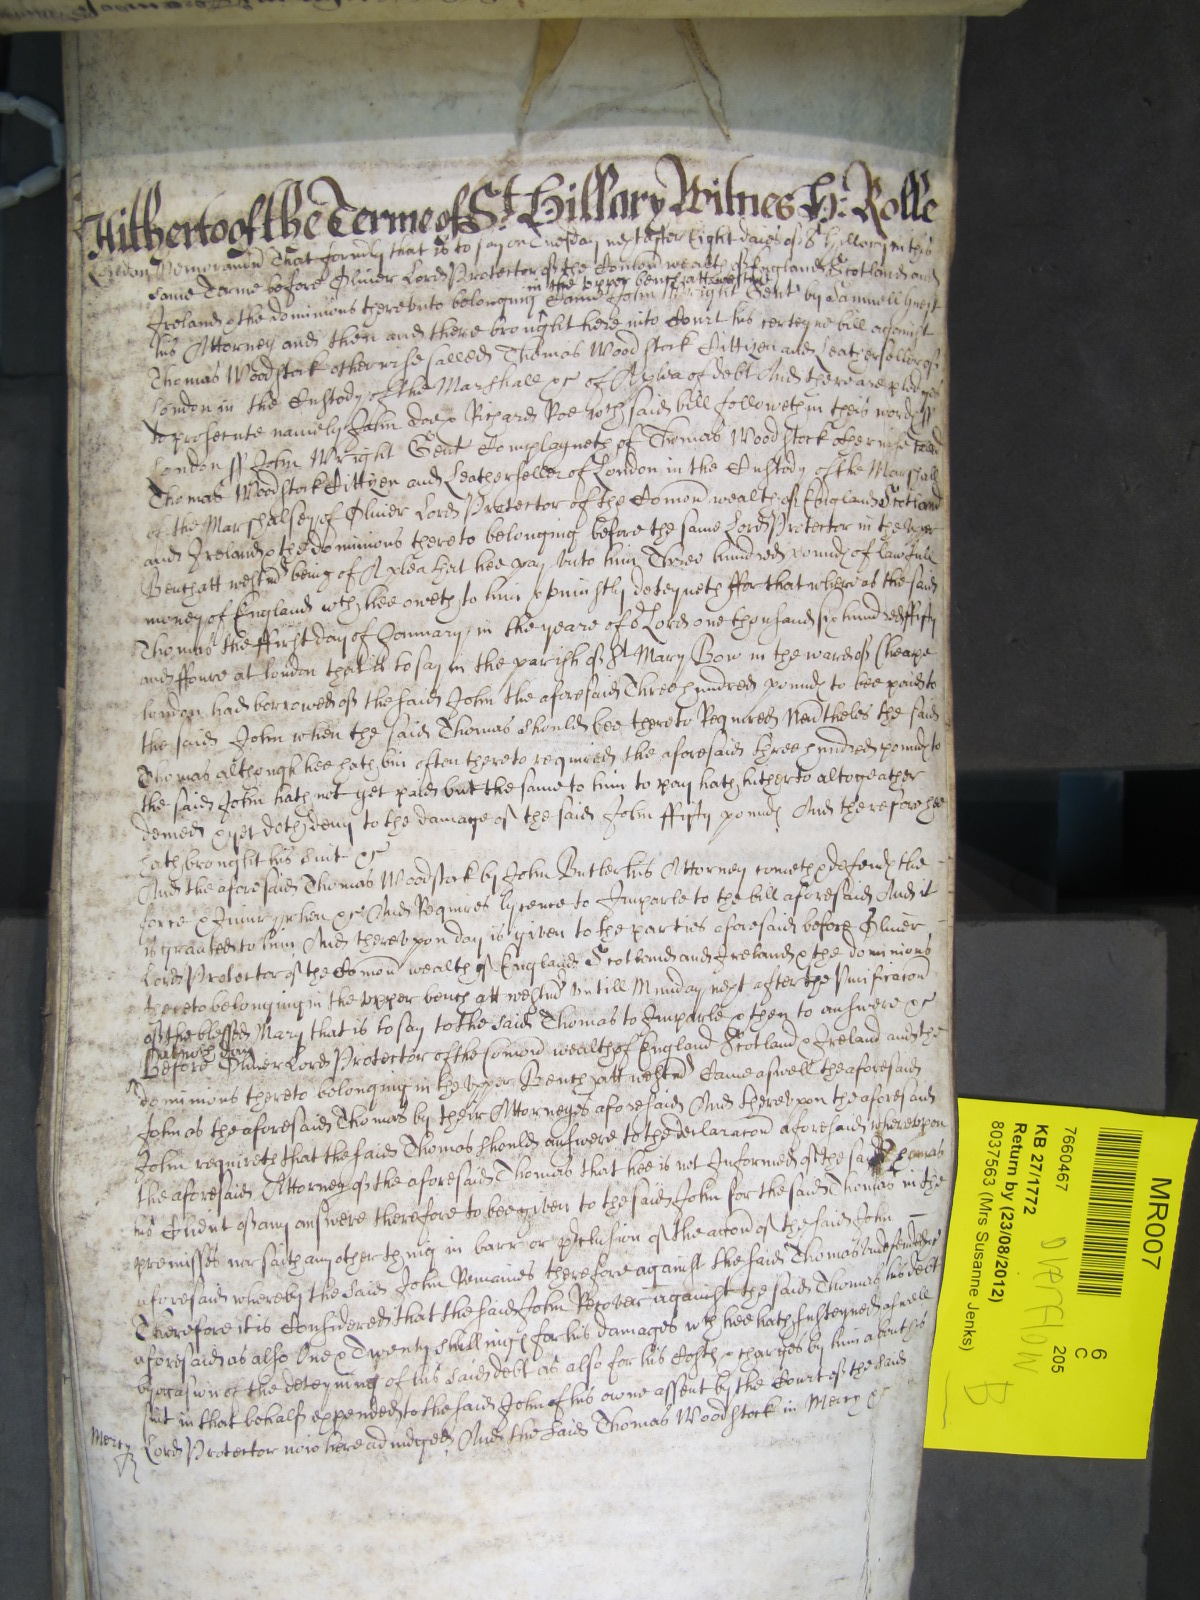 Hitherto of the Terme of St. Hillary Witnes H: Rolle
London Memorand That formerly that is to say on Tuesday next after Eight daies of St Hillory in this
same Terme before Oliver Lord Protector of the Comon wealth of England Scotland and
Ireland & the dominions thereunto belonging in the upper bench att westmr Came John Wright Gent by Samuell
his Attorney and then and there brought here into Court his certeyne bill against
Thomas Woodstock otherwise called Thomas Woodstock Cittizen and Leatherseller of
London in the Custody of the Marshall &c of A plea of debt And there are pledges
to prosecute namely John Doe & Richard Roe wch said bill followeth in theis words ss
London ss John Wright Gent Complayneth of Thomas Woodstock otherwise called
Thomas Woodstock Cittizen and Leatherseller of London in the Custody of the Marshall
of the Marshalsey of Oliver Lord Protector of the Comon wealth of England Scotland
and Ireland & the dominions thereto belonging before the same Lord Protector in the Upper
Bench att westmr being of A plea that hee pay unto him Three hundred pounds of lawfull
money of England wch hee oweth to him & uniustly deteyneth ffor that whereas the said
Thomas the ffirst day of January in the yeare of or Lord one thousand six hundred ffifty
and ffoure at London that is to say in the parish of St Mary Bow in the ward of Cheape
London had borrowed of the said John the aforesaid Three hundred pounds to bee paid to
the said John when the said Thomas should bee thereto Required Nevtheles the said
Thomas although hee hath bin often thereto required the aforesaid three hundred pounds to
the said John hath not yet paid but the same to him to pay hath hitherto altogeather
denied & yet doth deny to the damage of the said John ffifty pounds And therefore hee
hath brought his suit &c
And the aforesaid Thomas Woodstock by John Butler his Attorney cometh & defends the
force & Iniury when &c And Requires lycence to Imparle to the bill aforesaid And it
is granted to him And thereupon day is given to the parties aforesaid before Oliver
Lord Protector of the Comon wealth of England Scotland and Ireland & the dominions
thereto belonging in the upper bench att westmr Untill Munday next after the Purificacon
of the blessed Mary that is to say to the said Thomas to Imparle & then to answere &c
At wch day
Before Oliver Lord Protector of the Comon wealth of England Scotland & Ireland and the
dominions thereto belonging in the upper Bench att westmr Came aswell the aforesaid
John as the aforesaid Thomas by their Attorneyes aforesaid And thereupon the aforesaid
John requireth that the said Thomas should answere to the declaracon aforesaid whereupon
the aforesaid Attorney of the aforesaid Thomas that hee is not Informed of the said Thomas
his Client of any answere therefore to bee given to the said John for the said Thomas in the
premisses nor saith any other thing in barr or preclusion of the accon of the said John
aforesaid whereby the said John Remaines therefore against the said Thomas undefended
Therefore it is Considered that the said John Recover against the said Thomas his debt
aforesaid as also One & Twenty shillings for his damages wch hee hath susteyned aswell
by occasion of the deteyning of his said debt as also for his Costs & charges by him about his
suit in that behalf expended to the said John of his owne assent by the Court of the said
Lord Protector now here adiudged And the said Thomas Woodstock in Mercy &c
Mercy
MR007
6
C
205
7660467
KB 27/1772
OVERFLOW
Return by (23/08/2012)
8037563 (Mrs Susanne Jenks)
B